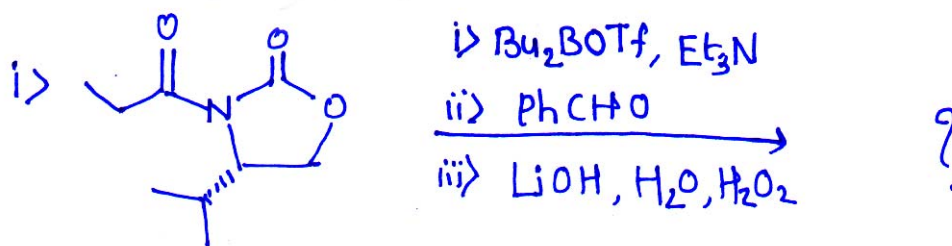 i> O O i> Bu₂BOTf, Et₃N
N O ii> PhCHO ?
iii> LiOH, H₂O, H₂O₂